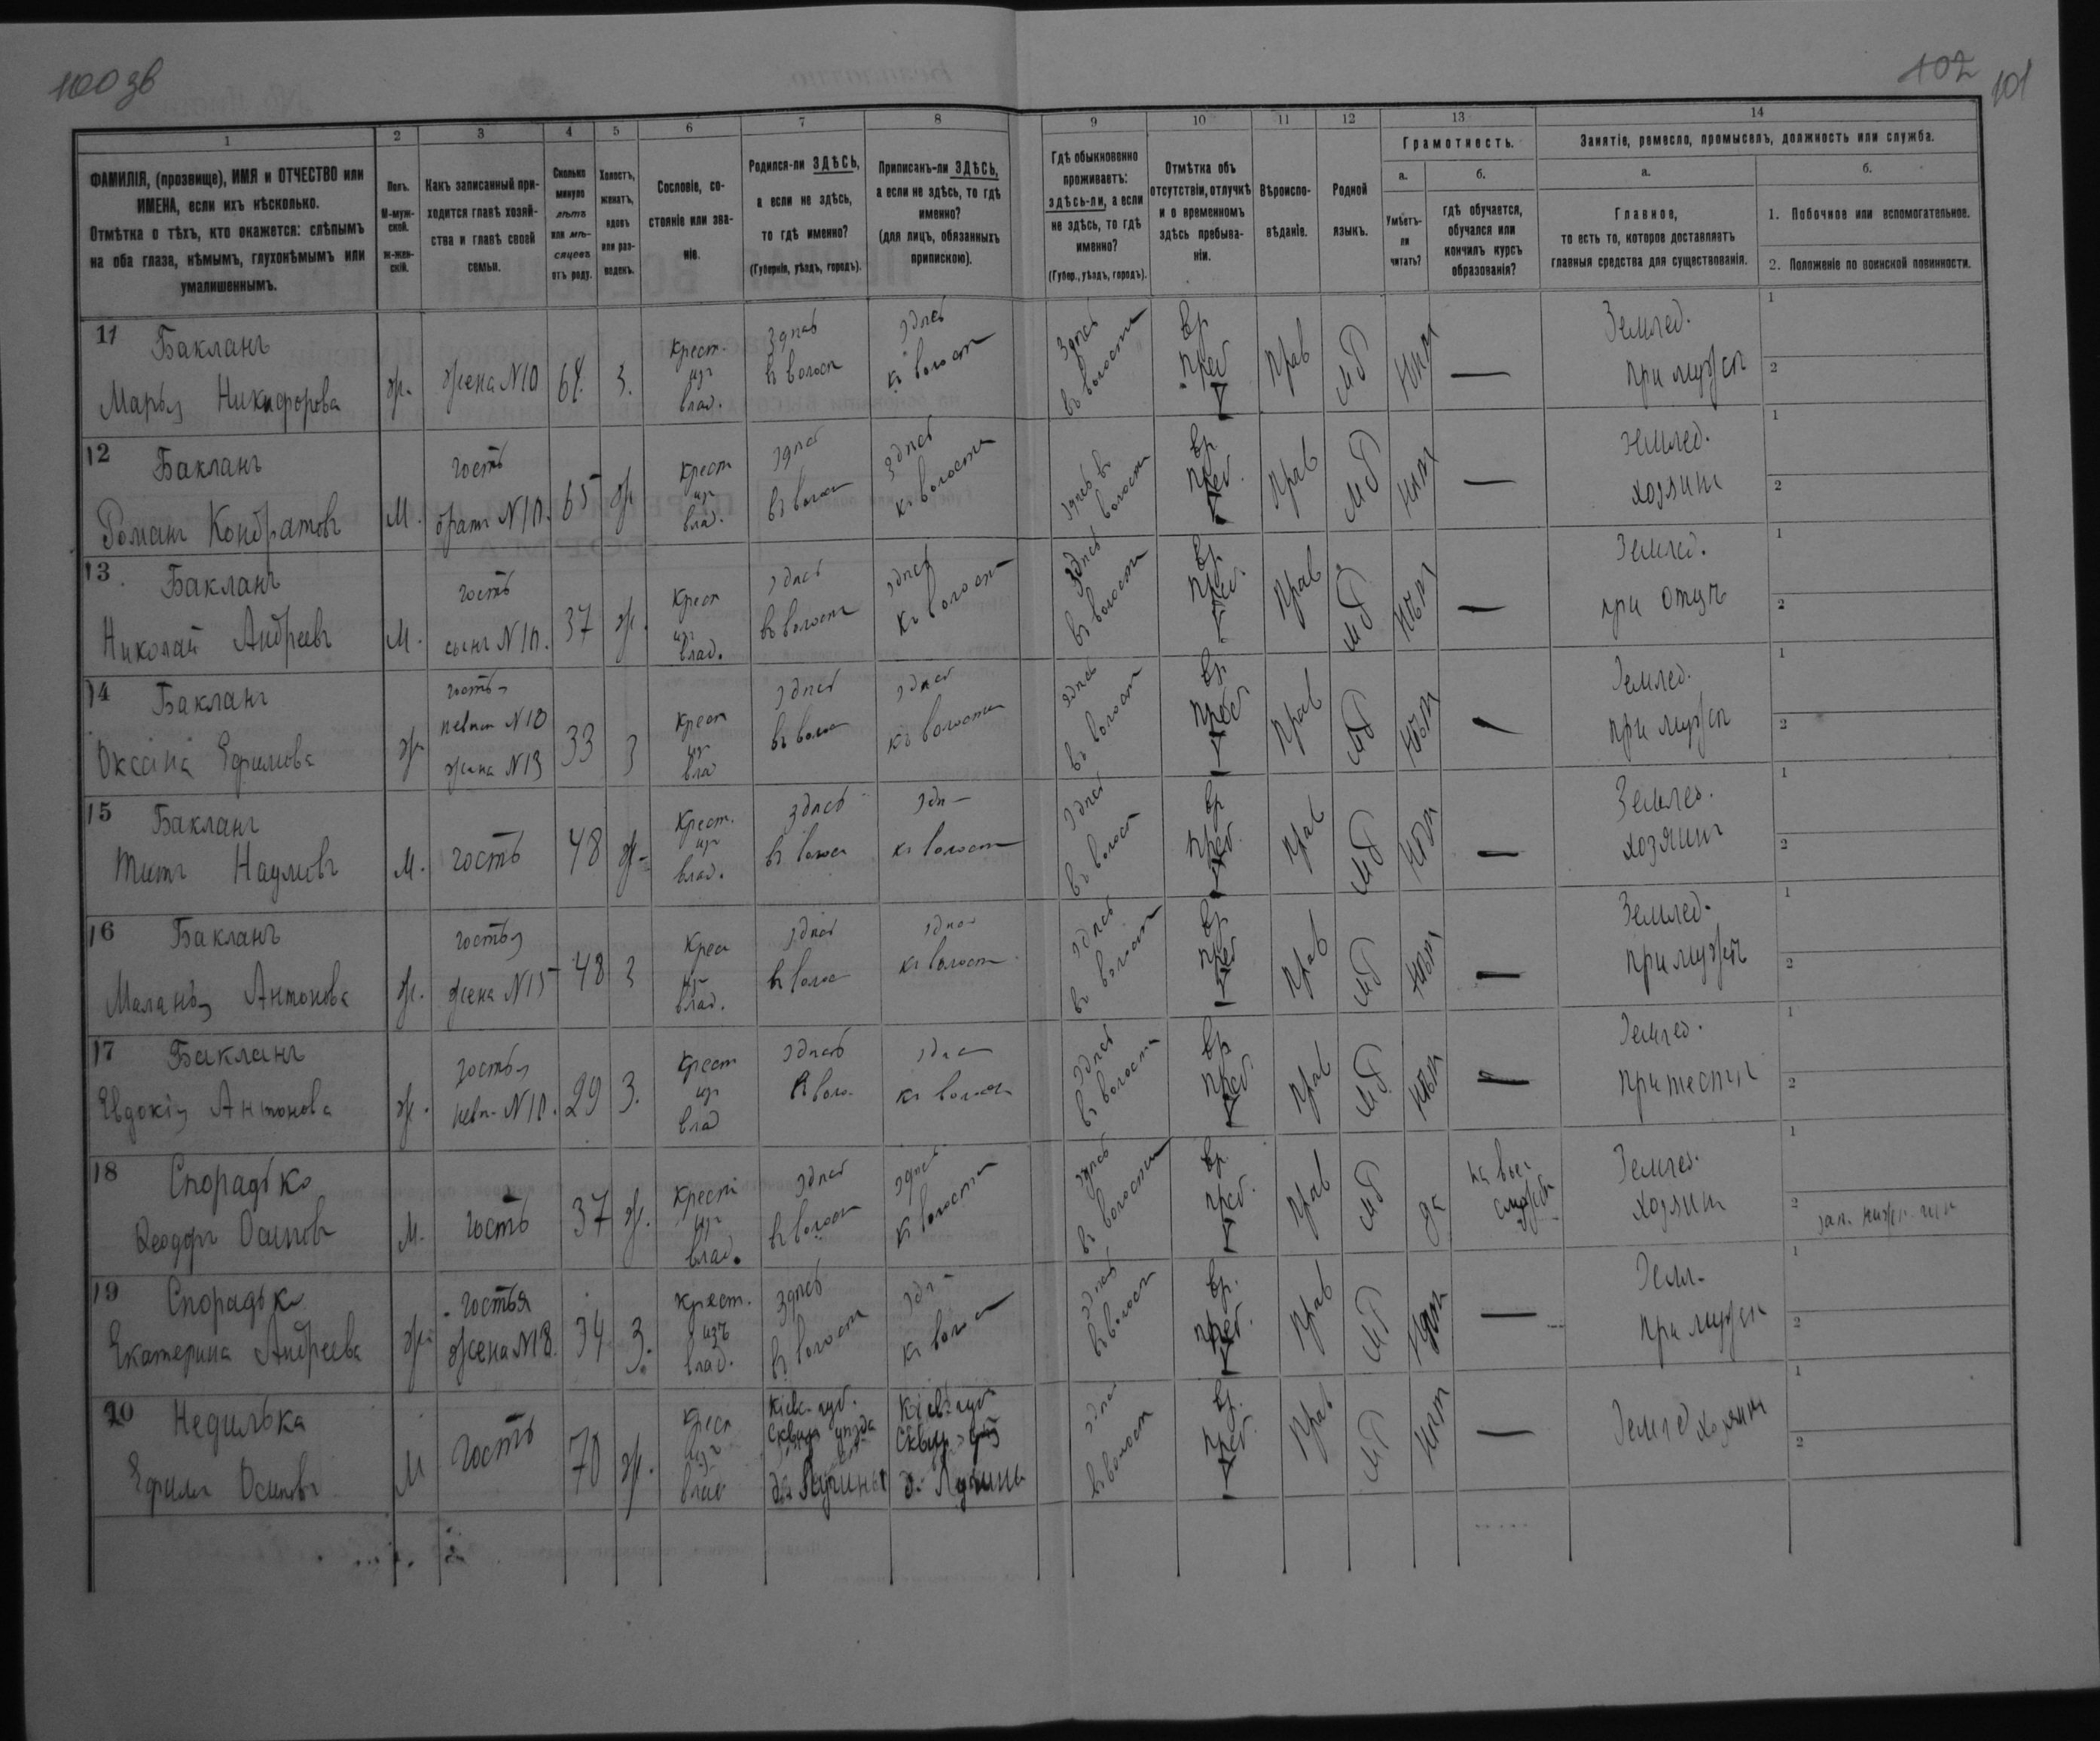 100 зв
102 101
1 2 3 4 5 6 7 8 9 10 11 12 13 14
ФАМИЛІЯ, (прозвище), ИМЯ и ОТЧЕСТВО или
ИМЕНА, если ихъ нѣсколько.
Отмѣтка о тѣхъ, кто окажется: слѣпымъ
на оба глаза, нѣмымъ, глухонѣмымъ или
умалишеннымъ.
Полъ.
М-муж-
ской.
Ж-жен-
скій.
Какъ записанный при-
ходится главѣ хозяй-
ства и главѣ своей
семьи.
Сколько
минуло
лѣтъ
или мѣ-
сяцевъ
отъ роду.
Холостъ,
женатъ,
вдовъ
или раз-
веденъ.
Сословіе, со-
стояніе или зва-
ніе.
Родился-ли ЗДѢСЬ,
а если не здѣсь,
то гдѣ именно?
(Губернія, уѣздъ, городъ).
Приписанъ-ли ЗДѢСЬ,
а если не здѣсь, то гдѣ
именно?
(для лицъ, обязанныхъ
припискою).
Гдѣ обыкновенно
проживаетъ:
здѣсь-ли, а если
не здѣсь, то гдѣ
именно?
(Губер., уѣздъ, городъ).
Отмѣтка объ
отсутствіи, отлучкѣ
и о временномъ
здѣсь пребыва-
ніи.
Вѣроиспо-
вѣданіе.
Родной
языкъ.
Грамотность.
а.
Умѣетъ-
ли
читать?
б.
гдѣ обучается,
обучался или
кончилъ курсъ
образованія?
Занятіе, ремесло, промыселъ, должность или служба.
а.
Главное,
то есть то, которое доставляетъ
главныя средства для существованія.
б.
1. Побочное или вспомогательное.
2. Положеніе по воинской повинности.
11 Бакланъ
Марья Никифорова
ж. жена N10 64. З.
Крест.
изъ
влад.
Здѣсь
въ волост
здѣсь
къ волост
Здѣсь
въ волости
вр
преб
Прав
мр
нѣтъ
—
Землед.
при мужѣ
1
2
12 Бакланъ
Романъ Кондратовъ
М.
гость
братъ N10. 65 ж
Крест
изъ
влад.
здѣсь
въ волос
здѣсь
къ волости
здѣсь въ
волости
вр
преб.
Прав
мр
нѣтъ
—
землед.
хозяинъ
1
2
13. Бакланъ
Николай Андреевъ
М.
гость
сынъ N10. 37 ж.
Крест
изъ
влад.
здѣсь
въ волост
здѣсь
къ волост
здѣсь
въ волости
вр
преб.
Прав
мр
нѣтъ
—
Землед.
при отцѣ
1
2
14 Бакланъ
Оксана Ефимова
ж
гостья
невѣст N10
жена N13 33 З
Крест
изъ
влад
здѣсь
въ волос
здѣсь
къ волости
здѣсь
въ волост
вр
преб
Прав
мр
нѣтъ
—
Землед.
при мужѣ
1
2
15 Бакланъ
Титъ Наумовъ
М. гость 48 ж-
Крест.
изъ
влад.
здѣсь
въ волос
здѣ-
къ волост
здѣсь
въ волост
вр
преб.
Прав
мр
нѣтъ
—
Землед.
хозяинъ
1
2
16 Бакланъ
Маланья Антонова
ж.
гостья
жена N15 48 З
Крест
изъ
влад.
здѣсь
въ волос
здѣс
къ волост
здѣсь
въ волост
вр
преб
Прав
мр
нѣтъ
—
Землед.
при мужѣ
1
2
17 Бакланъ
Евдокія Антонова
ж.
гостья
невѣ. N10. 29 З.
Крест
изъ
влад
здѣсь
въ воло.
здѣс
къ волост
здѣсь
въ волости
вр
преб
Прав
мр
нѣтъ
—
Землед.
при тестѣ
1
2
18 Спорадько
Ѳеодоръ Осиповъ
М. гость 37 ж.
Крест
изъ
влад.
здѣсь
въ волост
здѣсь
къ волости
здѣсь
въ волости
вр
преб.
Прав
мр
да
на воен
службѣ
Землед.
хозяинъ
1
2 зап. нижн. чин
19 Спорадько
Екатерина Андреева
ж.
гостья
жена N18. 34 З.
Крест.
изъ
влад.
здѣсь
въ волости
здѣ-
къ волос
здѣсь
въ волост
вр.
преб.
Прав
мр
нѣтъ
—
Земл.
при мужѣ
1
2
20 Недилька
Ефимъ Осиповъ
М гость 70 ж.
Крест
изъ
влад
Кіевс. губ.
Сквир уѣзда
Кіев. губ
Сквир.
здѣсь
въ волост
вр.
преб.
Прав
мр
нѣтъ
—
Землед хозяинъ
1
2